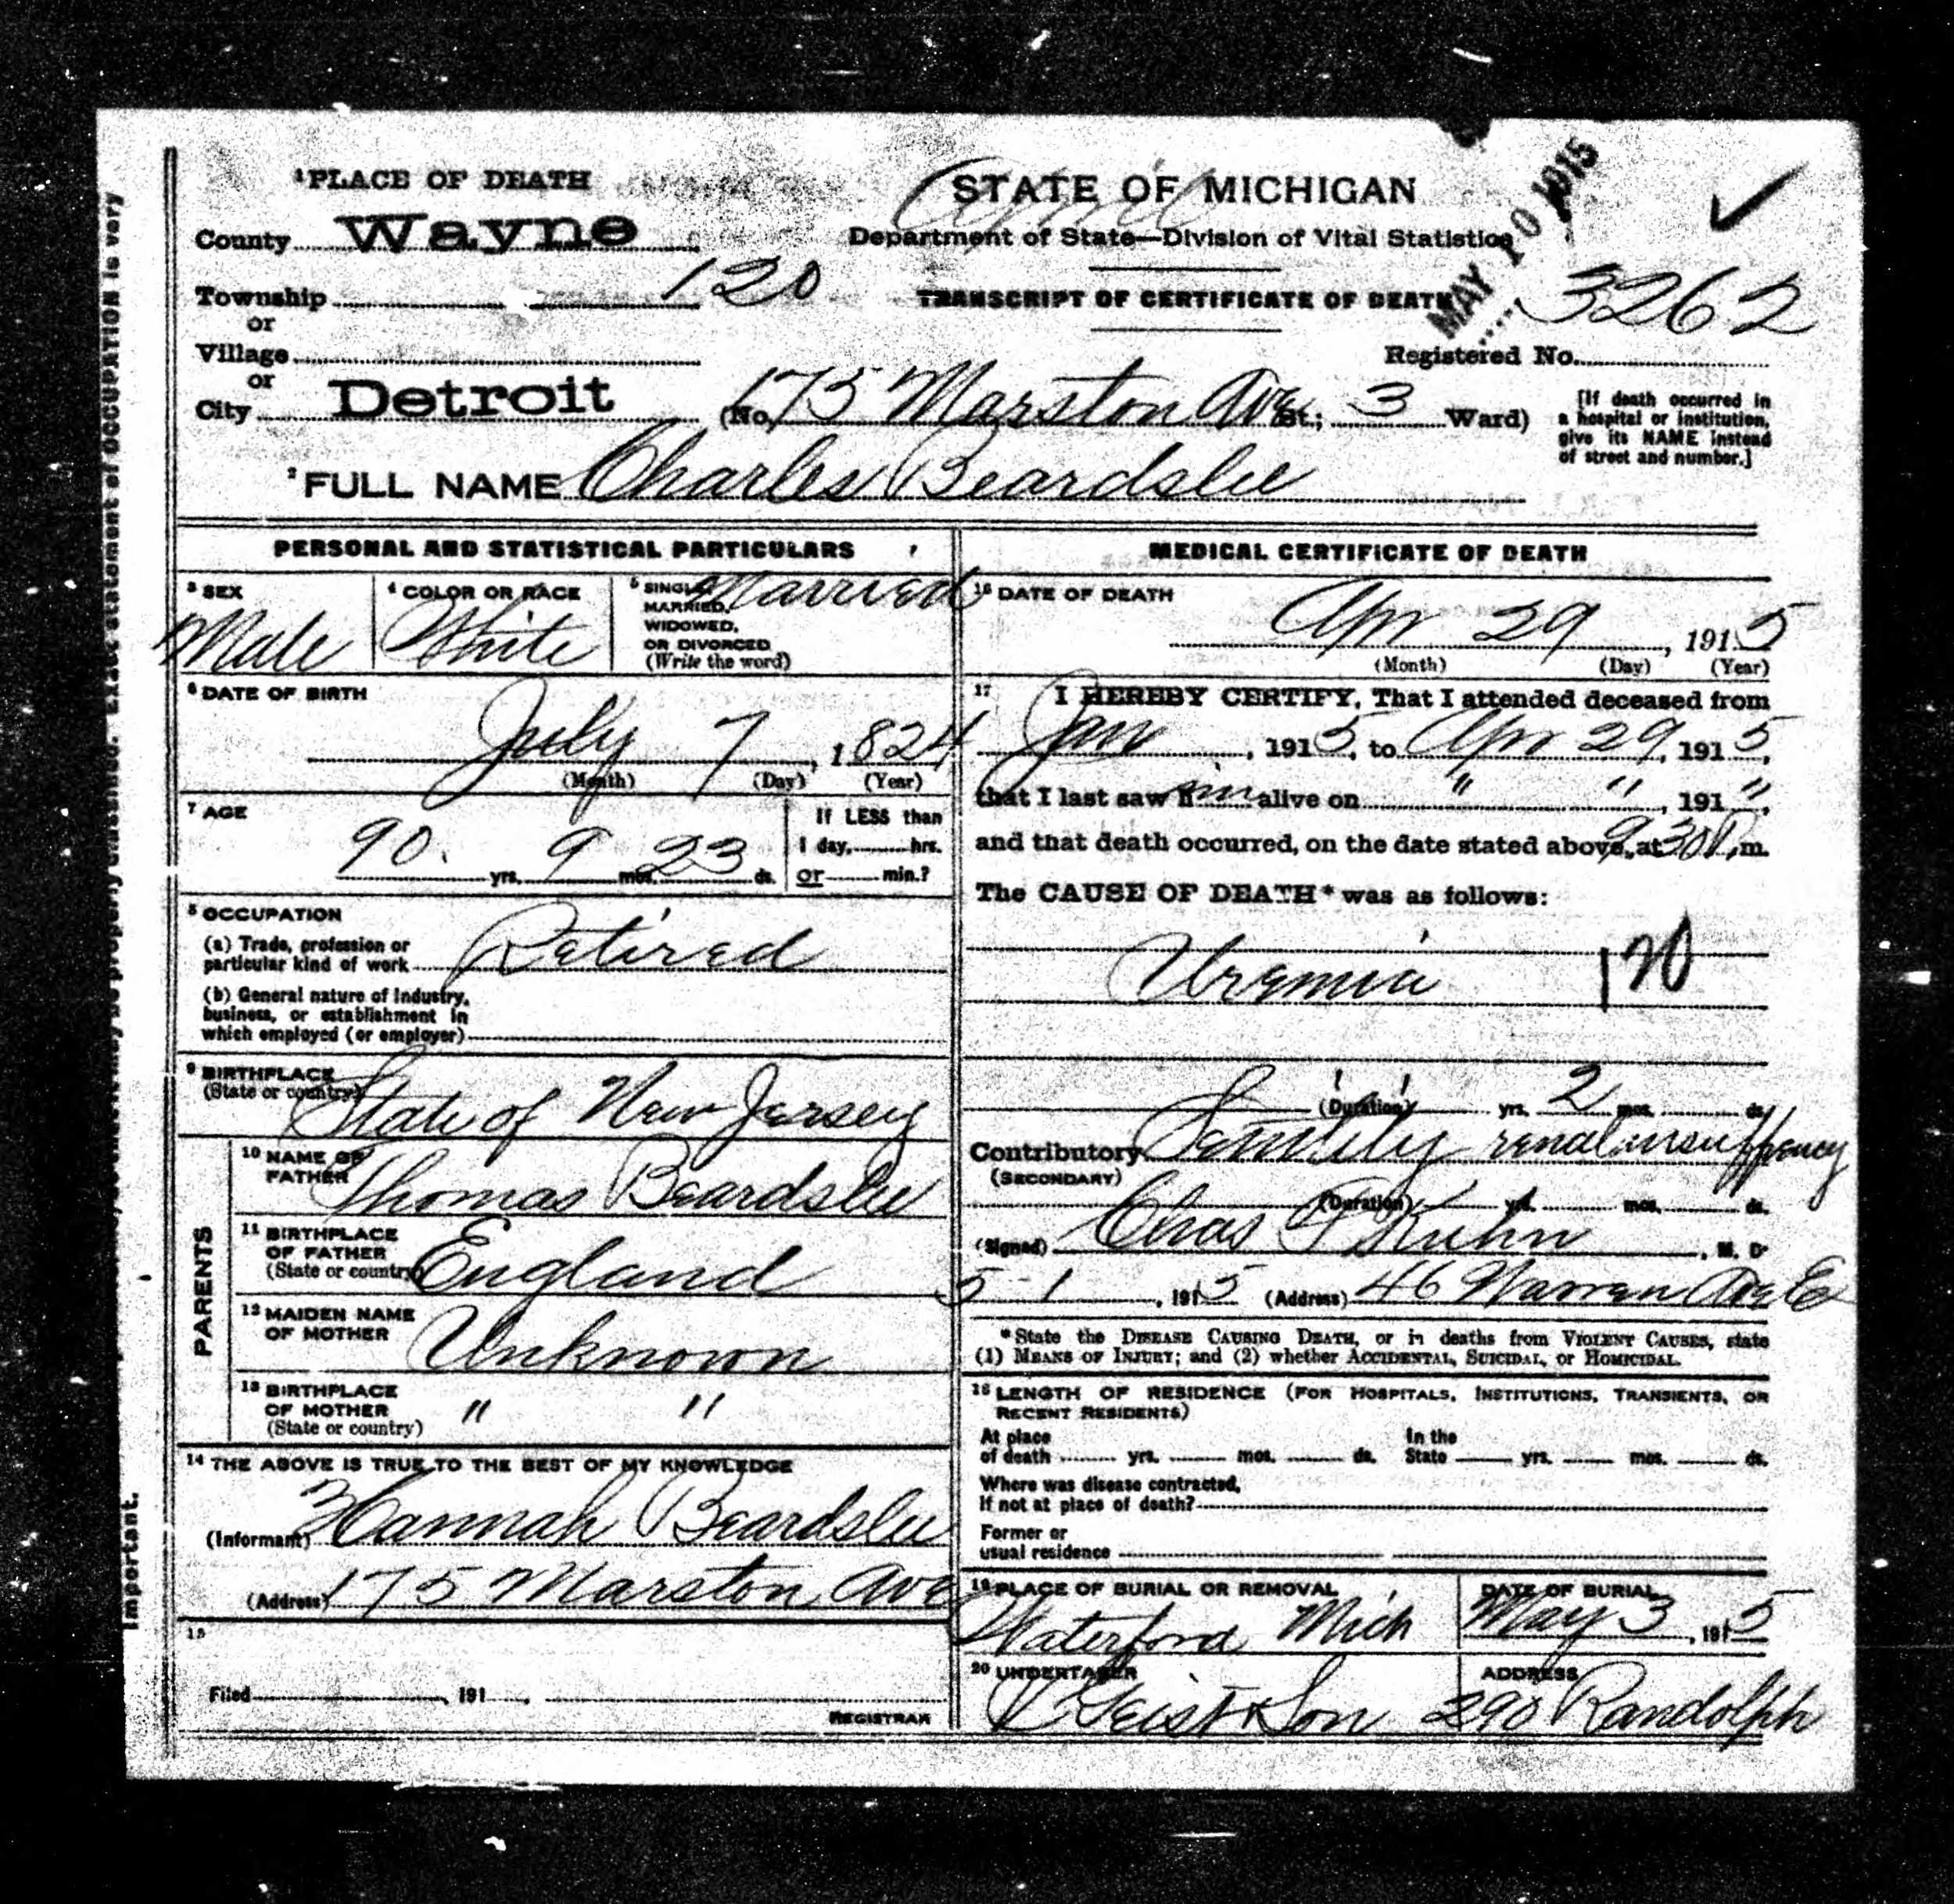 1 PLACE OF DEATH
County Wayne
Township 120
or
Village
or
City Detroit (No. 175 Marston Ave St.; 3 Ward)
April
STATE OF MICHIGAN
Department of State—Division of Vital Statistics
TRANSCRIPT OF CERTIFICATE OF DEATH
MAY 10 1915
3262
Registered No.
[If death occurred in
a hospital or institution,
give its NAME instead
of street and number.]
2 FULL NAME Charles Beardslee
PERSONAL AND STATISTICAL PARTICULARS
3 SEX
Male
4 COLOR OR RACE
White
5 SINGLE, Married
MARRIED,
WIDOWED,
OR DIVORCED
(Write the word)
6 DATE OF BIRTH
July 7, 1824
(Month) (Day) (Year)
7 AGE
90. yrs. 9 mos. 23 ds.
If LESS than
1 day, hrs.
or min.?
8 OCCUPATION
(a) Trade, profession or
particular kind of work Retired
(b) General nature of industry,
business, or establishment in
which employed (or employer)
9 BIRTHPLACE
(State or country) State of New Jersey
PARENTS
10 NAME OF
FATHER Thomas Beardslee
11 BIRTHPLACE
OF FATHER
(State or country) England
12 MAIDEN NAME
OF MOTHER Unknown
13 BIRTHPLACE
OF MOTHER " "
(State or country)
14 THE ABOVE IS TRUE TO THE BEST OF MY KNOWLEDGE
(Informant) Hannah Beardslee
(Address) 175 Marston Ave
15
Filed , 191 .
REGISTRAR
MEDICAL CERTIFICATE OF DEATH
16 DATE OF DEATH
Apr 29, 1915
(Month) (Day) (Year)
17 I HEREBY CERTIFY, That I attended deceased from
Jan , 1915, to Apr 29, 1915,
that I last saw him alive on " ", 191",
and that death occurred, on the date stated above, at 930 P. m.
The CAUSE OF DEATH* was as follows:
Uremia 120
(Duration) yrs. 2 mos. ds.
Contributory Senility renal insuffiency
(SECONDARY)
(Duration) yrs. mos. ds.
(Signed) Chas F Kuhn, M. D
5-1, 1915 (Address) 46 Warren Ave E
*State the DISEASE CAUSING DEATH, or in deaths from VIOLENT CAUSES, state
(1) MEANS OF INJURY; and (2) whether ACCIDENTAL, SUICIDAL, or HOMICIDAL.
18 LENGTH OF RESIDENCE (FOR HOSPITALS, INSTITUTIONS, TRANSIENTS, OR
RECENT RESIDENTS)
At place In the
of death yrs. mos. ds. State yrs. mos. ds.
Where was disease contracted,
If not at place of death?
Former or
usual residence
19 PLACE OF BURIAL OR REMOVAL
Waterford Mich
DATE OF BURIAL
May 3, 1915
20 UNDERTAKER
V Geist & Son
ADDRESS
290 Randolph
Exact statement of OCCUPATION is very
Important.